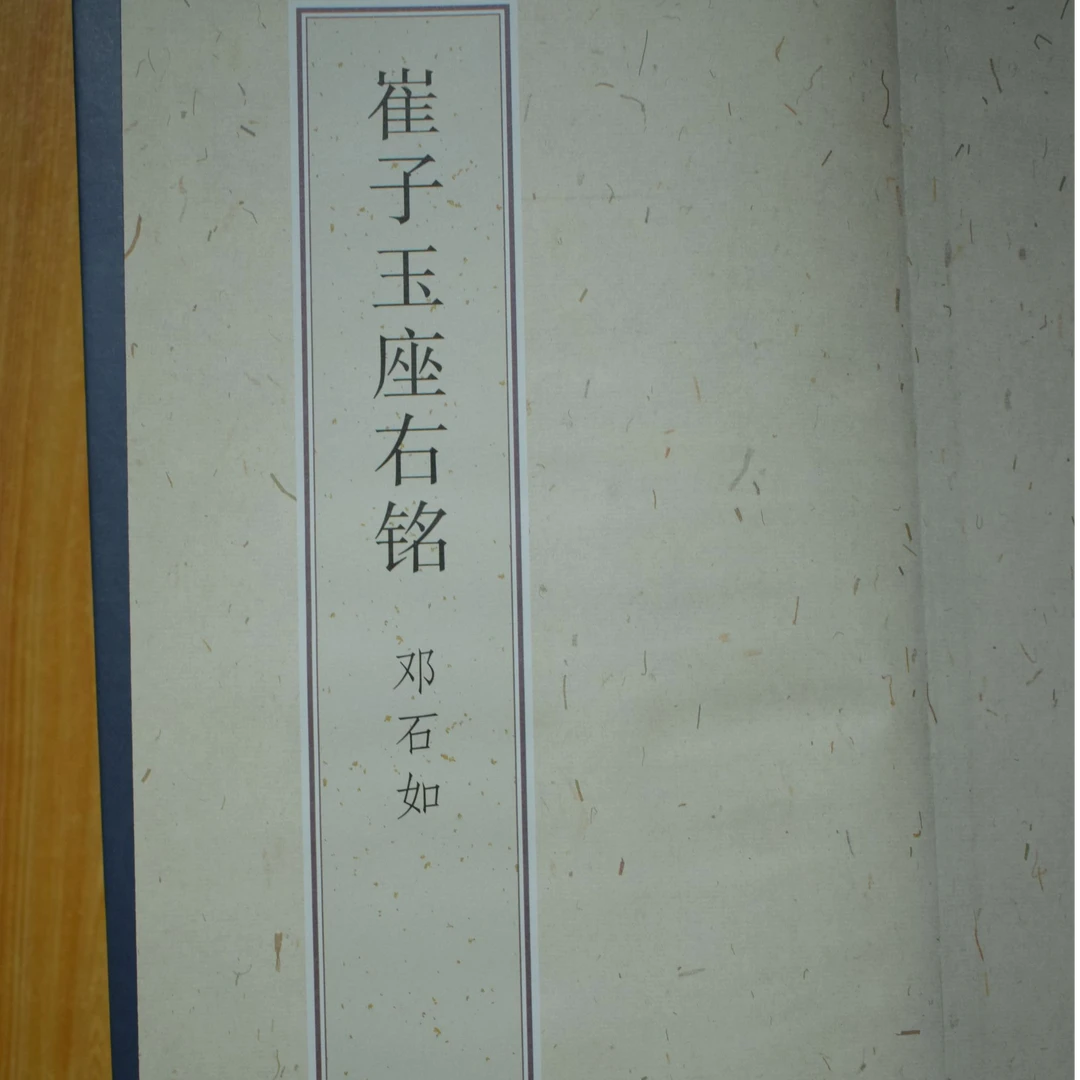 崔子玉座右铭
邓石如